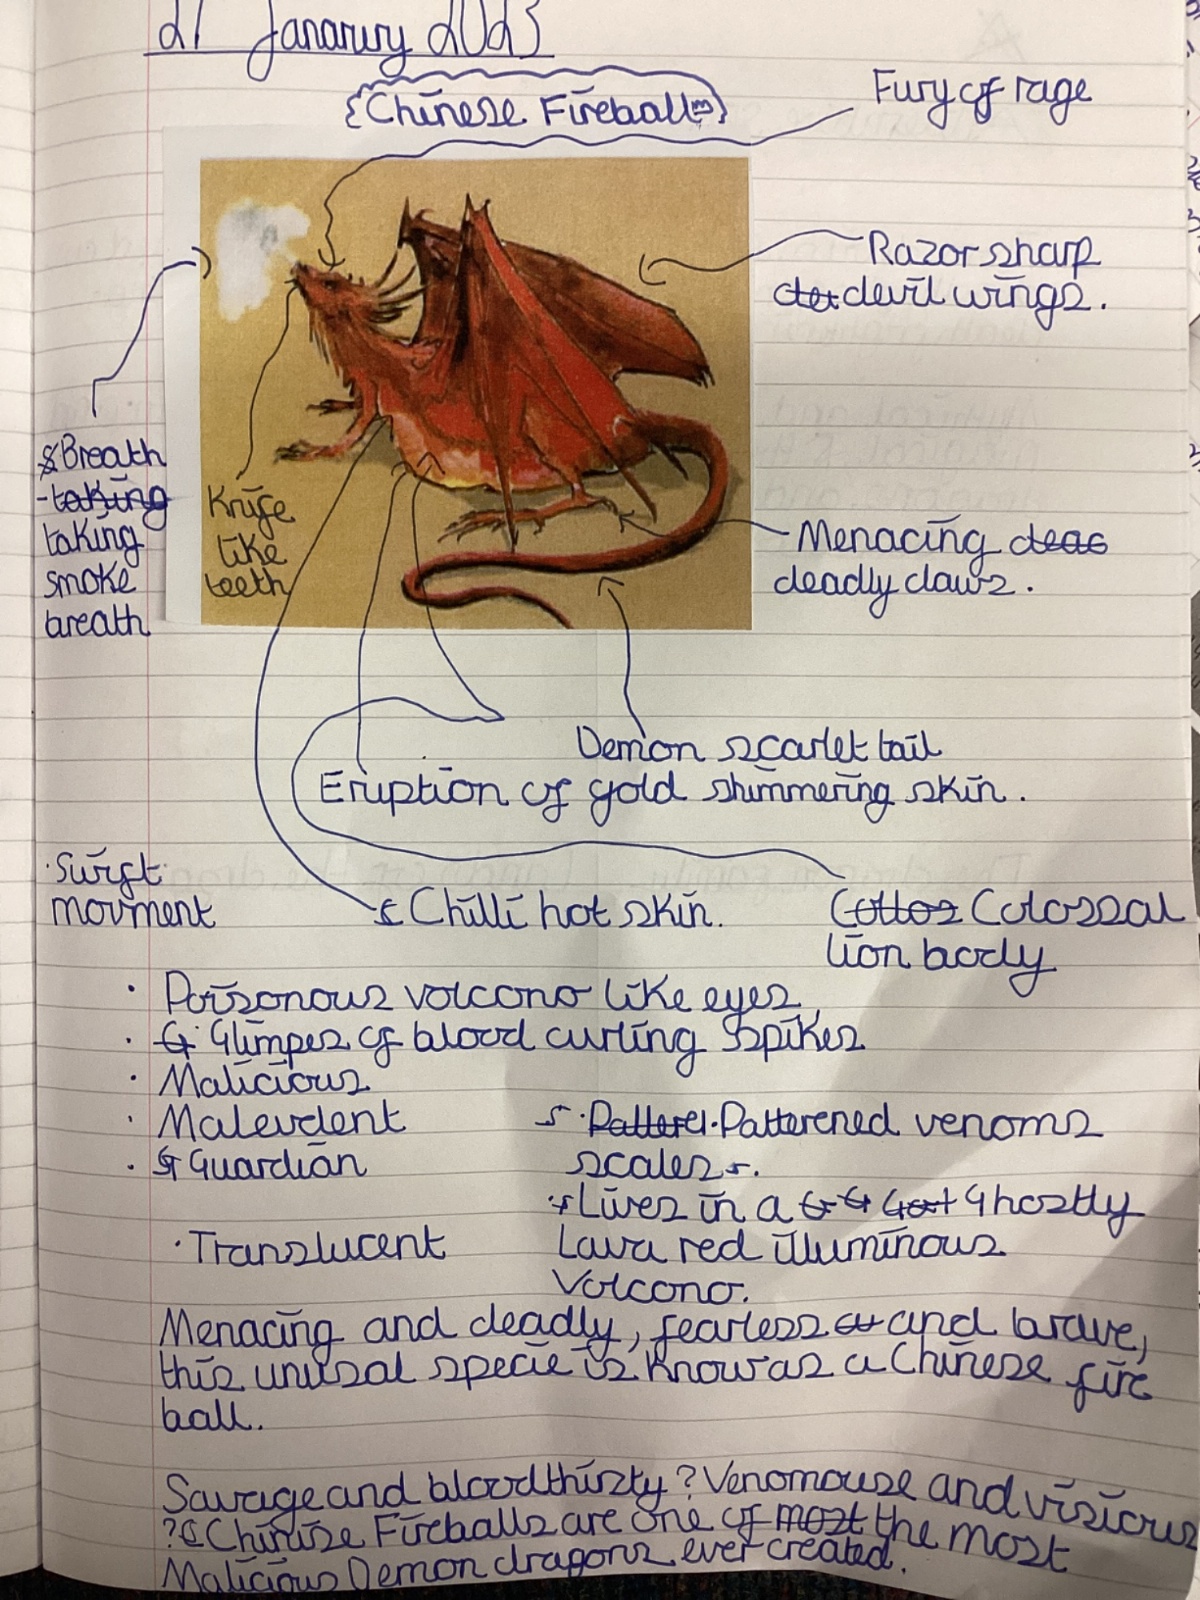 27 Janarury 2023
Chinese Fireball
Fury of rage
Razor sharp
devil wings.
Breath
-taking
taking
smoke
breath
Knife
like
teeth
Menacing deas
deadly claws.
Demon scarlet tail
Eruption of gold shimmering skin.
·Swift
movment
Chilli hot skin.
Cottos Colossal
lion body
· Poisonous volcono like eyes
· G Glimpes of blood curling spikes
· Malicious
· Malevelent
· Guardian
· Patterel·Patterened venoms
scales.
Lives in a G G Gost Ghostly
Lava red illuminous
Volcono.
·Translucent
Menacing and deadly, fearless and brave,
this unusal specie is know as a Chinese fire
ball.
Savage and bloodthirsty? Venomouse and visious
? Chinise Fireballs are one of most the most
Malicious Demon dragons ever created.